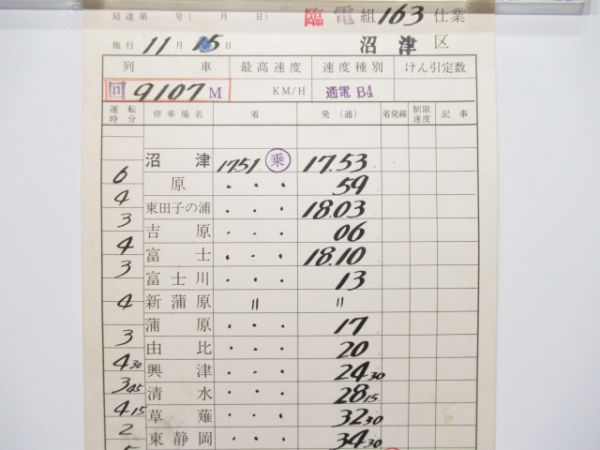 局達第 号( 月 日) 臨 電 組 163 仕業
施行 11 月 15 日 沼津 区
列 車 最高速度 速度種別 けん引定数
回 9107 M KM/H 通電 B4
運転時分 停車場名 着 発(通) 着発線 制限速度 記事
沼 津 1751 乗 17.53
6
原 . . . 59
4
東田子の浦 . . . 18.03
3
吉 原 . . . 06
4
富 士 . . . 18.10
3
富士川 . . . 13
新蒲原 〃 〃
4
蒲 原 . . . 17
3
由 比 . . . 20
4 30
興 津 . . . 24 30
3 45
清 水 . . . 28 15
4 15
草 薙 . . . 32 30
2
東静岡 . . . 34 30